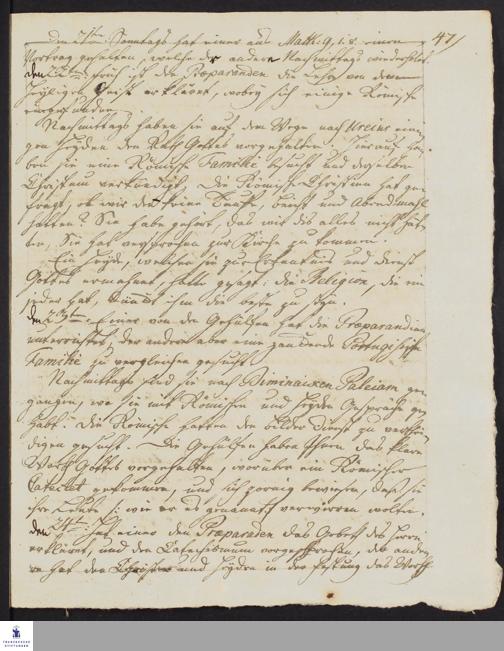 47/
den 21ten Sonntags hat einer aus Matth: 9, 1. 8. einen
Vortrag gehalten, welche der andere Nachmittags wiederholet.
den 22ten früh ist den Præparanden die Lehre von dem
Heiligen Geist erkläret, wobey sich einige Römische
eingefunden.
Nachmittags haben sie auf dem Wege nach Ureius eini-
gen Heyden den Rath Gottes vorgehalten. Hierauf ha-
ben sie eine Römische Familie besucht und derselben
Christum verkündigt. Die Römische Christen hat ge-
fragt, ob wir denn keine Taufe, Beicht und Abendmahl
hätten? Sie habe gehört, das wir dis alles nicht hät-
ten, Sie hat versprochen zur Kirche zu kommen.
Ein Heyde, welchen sie zur Erkentniß und Dienst
Gottes ermahnet, hatte gesagt: die Religion, die ein
jeder hat, dünckt ihm die beste zu seyn.
den 23ten Einer von den Gehülfen hat die Præparanden
unterrichtet, der andere aber eine zanckende Portugisische
Familie zu vergleichen gesucht.
Nachmittags sind sie nach Diminaicken Paleiam ge-
gangen, wo sie mit Römischen und Heyden Gespräche ge-
habt. Die Römische hatten den Bilder Dienst zu verthei-
digen gesucht. Die Gehülfen haben ihnen das klare
Wort Gottes vorgehalten, worüber ein Römischer
Catechet gekommen, und sich zornig bewiesen, daß sie
ihre Leute /: wie er es genannt :/ verwirren wolten.
den 24ten hat einer den Præparanden das Gebeth des Herrn
erkläret, und den Catechismum vorgesprochen, der ande-
re hat den Christen und Heyden in der Festung das Wort
FRANCKESCHE
STIFTUNGEN